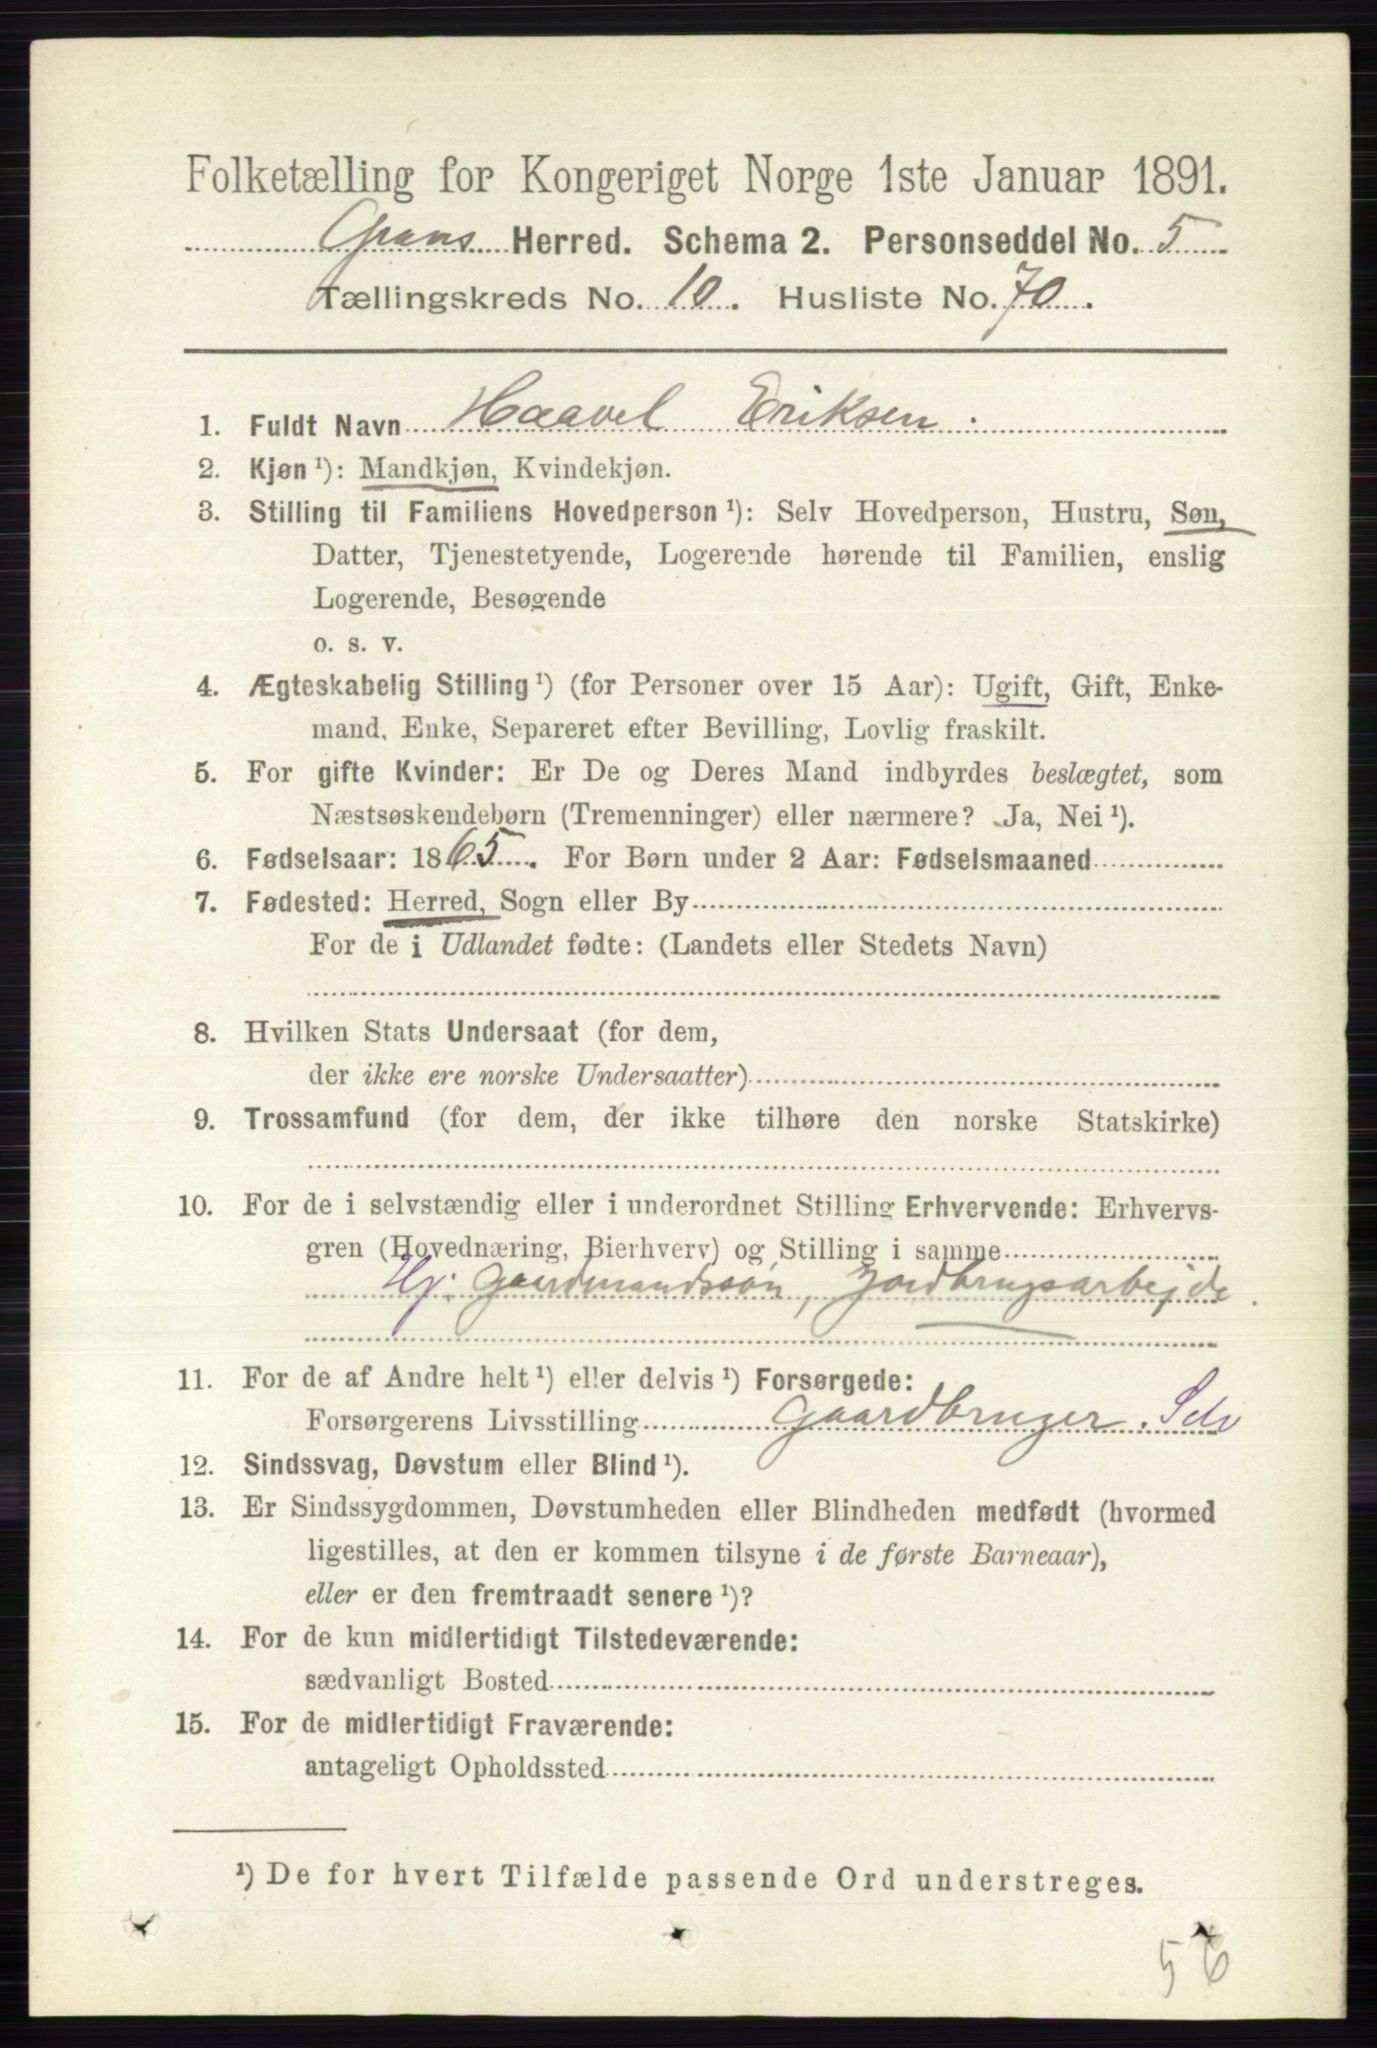 Folketælling for Kongeriget Norge 1ste Januar 1891.
Grans Herred. Schema 2. Personseddel No. 5
Tællingskreds No. 10. Husliste No. 70.
1. Fuldt Navn Haavel Eriksen.
2. Kjøn ¹): Mandkjøn, Kvindekjøn.
3. Stilling til Familiens Hovedperson ¹): Selv Hovedperson, Hustru, Søn,
Datter, Tjenestetyende, Logerende hørende til Familien, enslig
Logerende, Besøgende
o. s. v.
4. Ægteskabelig Stilling ¹) (for Personer over 15 Aar): Ugift, Gift, Enke-
mand, Enke, Separeret efter Bevilling, Lovlig fraskilt.
5. For gifte Kvinder: Er De og Deres Mand indbyrdes beslægtet, som
Næstsøskendebørn (Tremenninger) eller nærmere? Ja, Nei ¹).
6. Fødselsaar: 1865. For Børn under 2 Aar: Fødselsmaaned
7. Fødested: Herred, Sogn eller By
For de i Udlandet fødte: (Landets eller Stedets Navn)
8. Hvilken Stats Undersaat (for dem,
der ikke ere norske Undersaatter)
9. Trossamfund (for dem, der ikke tilhøre den norske Statskirke)
10. For de i selvstændig eller i underordnet Stilling Erhvervende: Erhvervs-
gren (Hovednæring, Bierhverv) og Stilling i samme
Hj. Gaardmandssøn, Jordbrugsarbejde.
11. For de af Andre helt ¹) eller delvis ¹) Forsørgede:
Forsørgerens Livsstilling Gaardbruger. Selv
12. Sindssvag, Døvstum eller Blind ¹).
13. Er Sindssygdommen, Døvstumheden eller Blindheden medfødt (hvormed
ligestilles, at den er kommen tilsyne i de første Barneaar),
eller er den fremtraadt senere ¹)?
14. For de kun midlertidigt Tilstedeværende:
sædvanligt Bosted
15. For de midlertidigt Fraværende:
antageligt Opholdssted
¹) De for hvert Tilfælde passende Ord understreges.
56